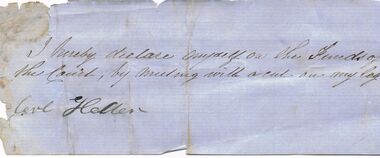 I hereby declare myself on the Funds o
the Court, by meeting with a cut on my leg
Carl Heller